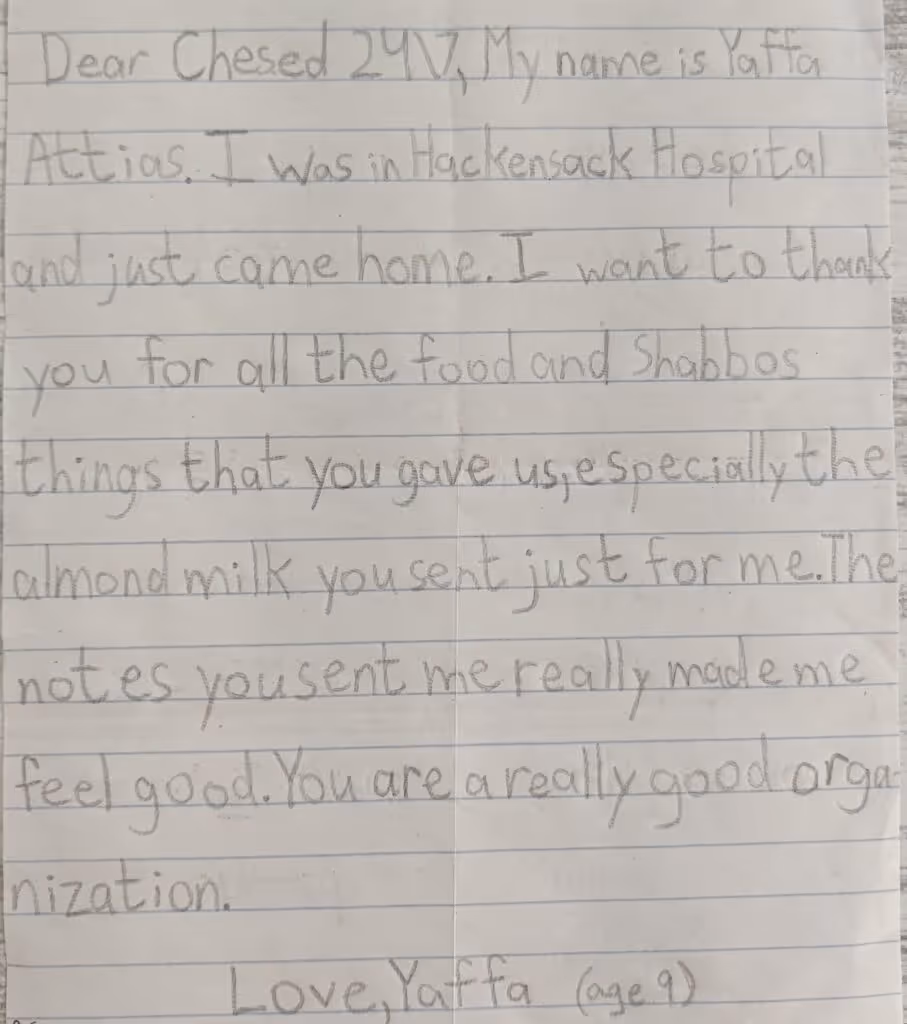 Dear Chesed 24\7, My name is Yaffa
Attias. I was in Hackensack Hospital
and just came home. I want to thank
you for all the food and Shabbos
things that you gave us, especially the
almond milk you sent just for me. The
notes you sent me really made me
feel good. You are a really good orga-
nization.
Love, Yaffa (age 9)